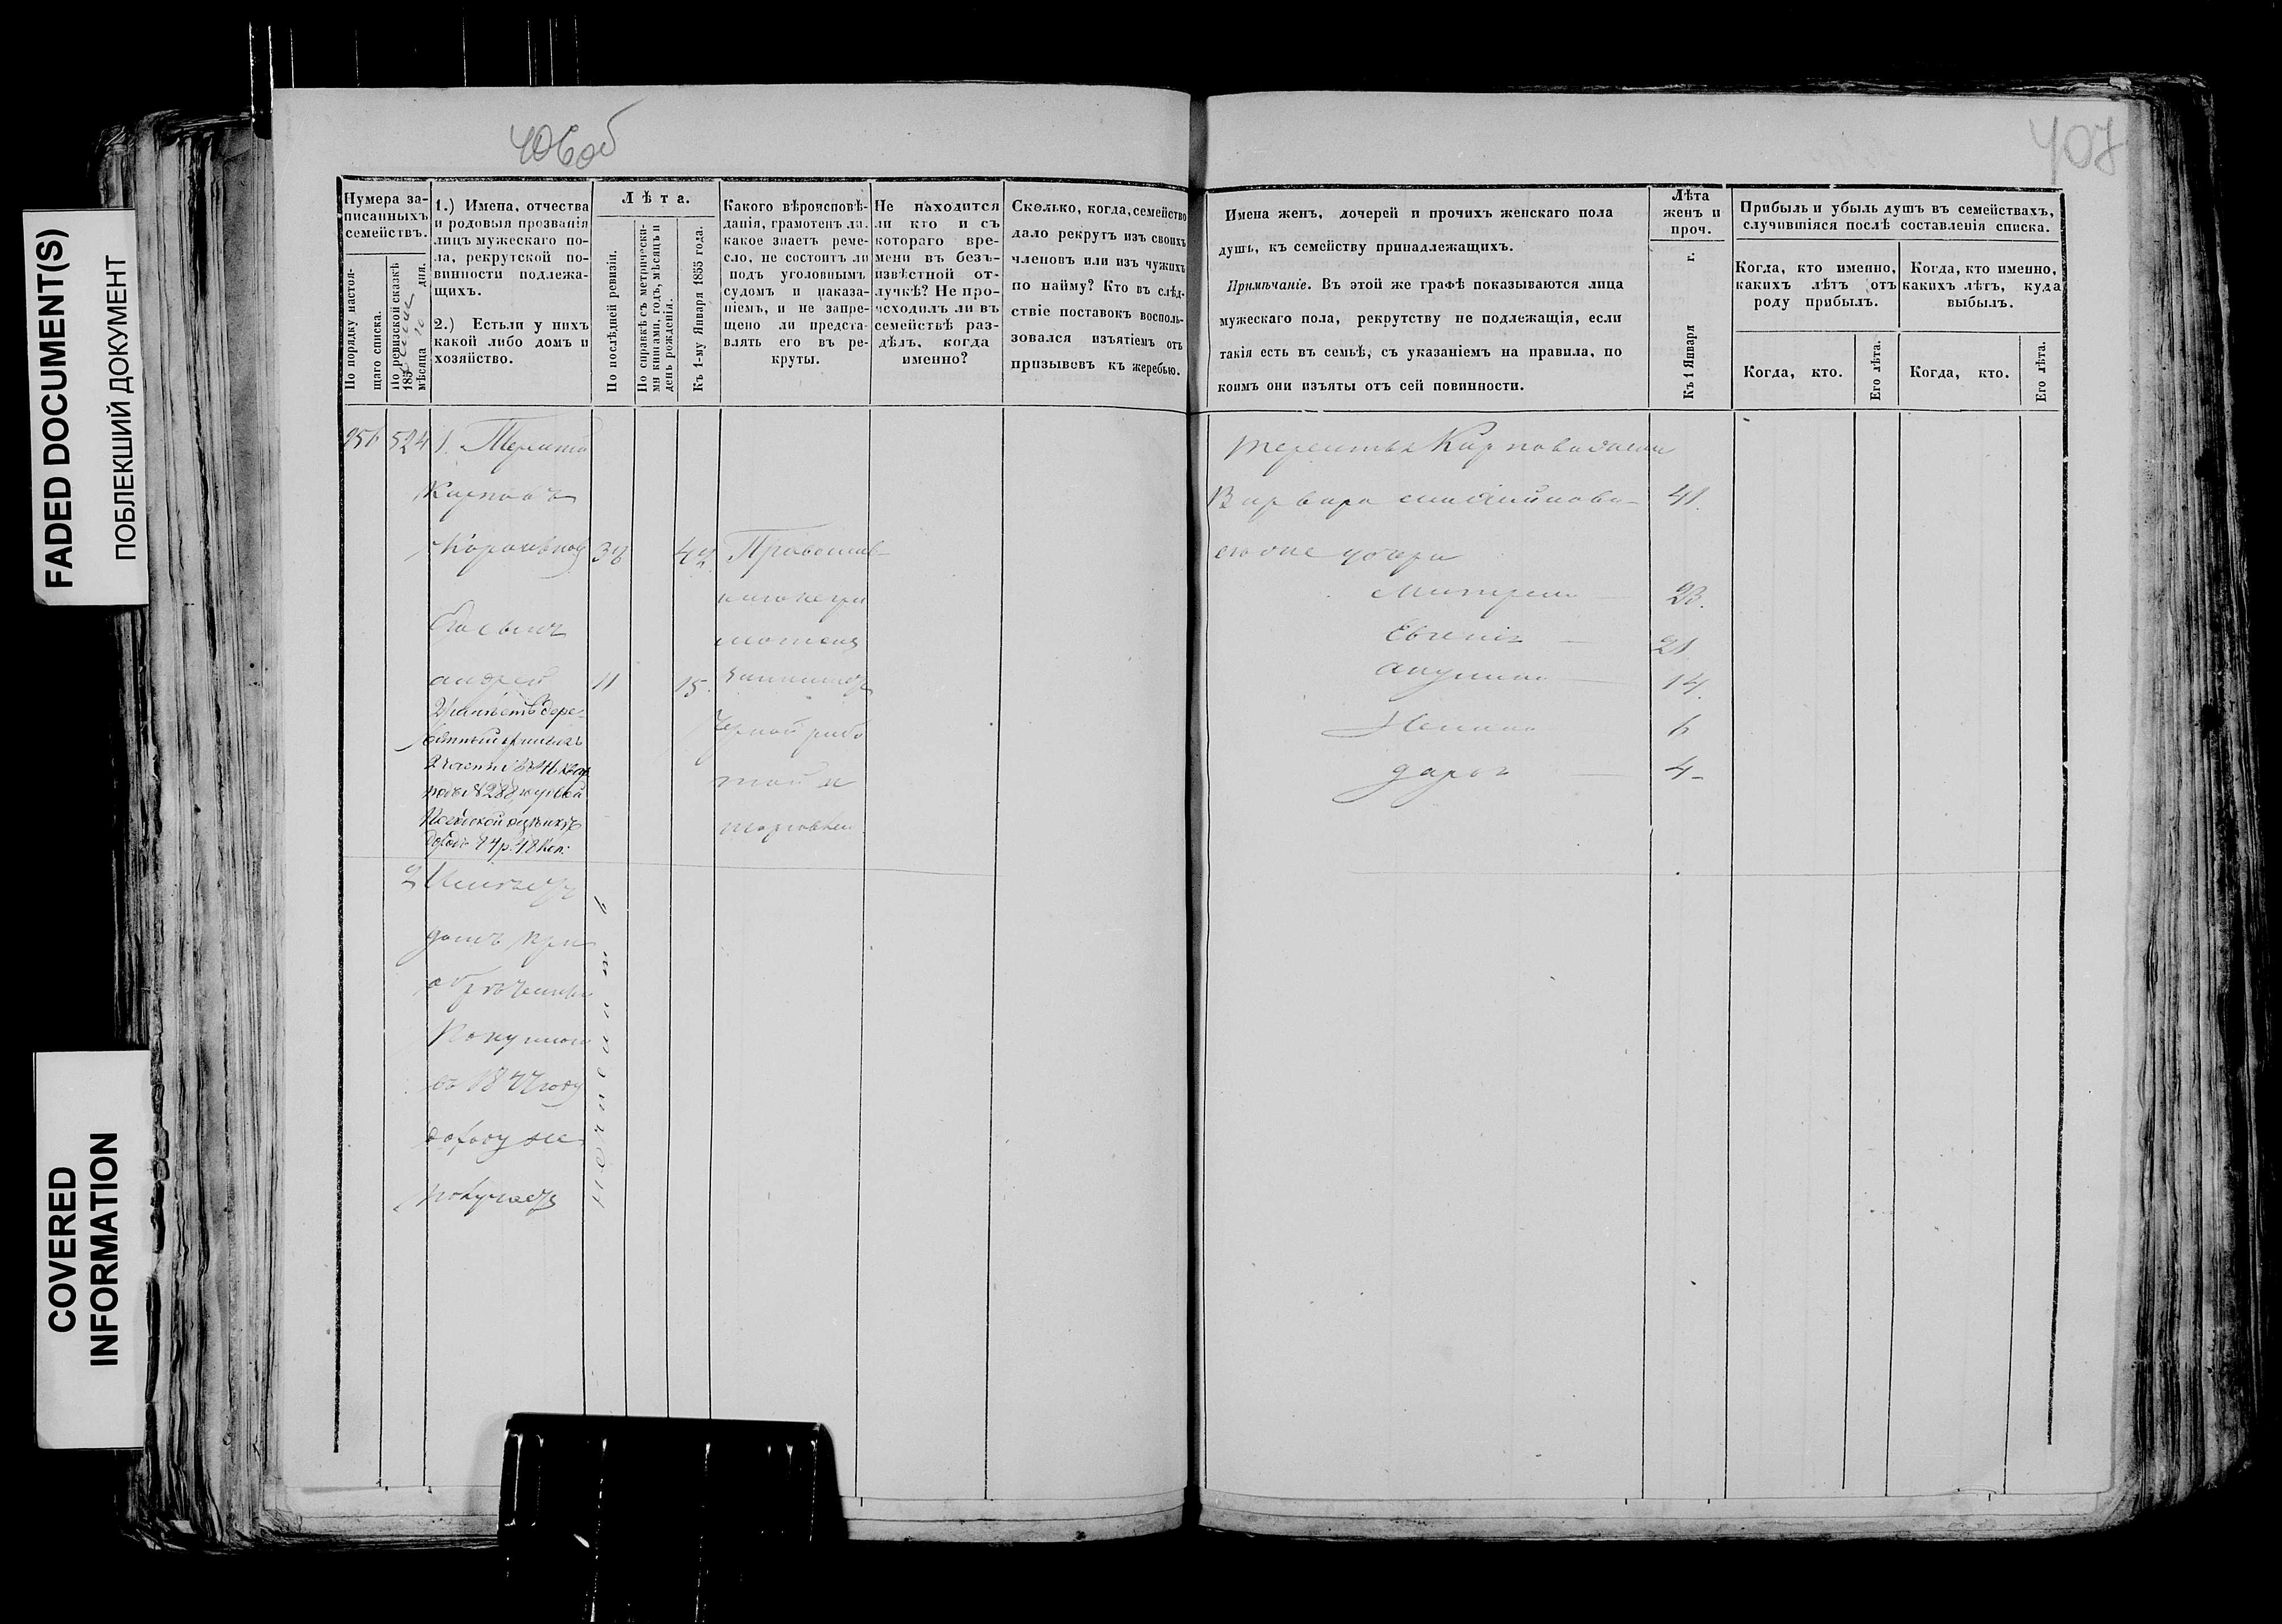 FADED DOCUMENT(S)
ПОБЛЕКШИЙ ДОКУМЕНТ
COVERED
INFORMATION
406об
407
Нумера за-
писанныхъ
семействъ.
По порядку настоя-
щаго списка.
По ревизской сказкѣ
185
мѣсяца 10 дня.
1.) Имена, отчества
и родовыя прозванія
лицъ мужескаго по-
ла, рекрутской по-
винности подлежа-
щихъ.
2.) Естьли у нихъ
какой либо домъ и
хозяйство.
Лѣта.
По послѣдней ревизіи.
По справкѣ съ метрически-
ми книгами, годъ, мѣсяцъ и
день рожденія.
Къ 1-му Января 1855 года.
Какого вѣроисповѣ-
данія, грамотенъ ли,
какое знаетъ реме-
сло, не состоитъ ли
подъ уголовнымъ
судомъ и наказа-
ніемъ, и не запре-
щено ли предста-
влять его въ ре-
круты.
Не находится
ли кто и съ
котораго вре-
мени въ безъ-
извѣстной от-
лучкѣ? Не про-
исходилъ ли въ
семействѣ раз-
дѣлъ, когда
именно?
Сколько, когда, семейство
дало рекрутъ изъ своихъ
членовъ или изъ чужихъ
по найму? Кто въ слѣд-
ствіе поставокъ восполь-
зовался изъятіемъ отъ
призывовъ къ жеребью.
Имена женъ, дочерей и прочихъ женскаго пола
душъ, къ семейству принадлежащихъ.
Примѣчаніе. Въ этой же графѣ показываются лица
мужескаго пола, рекрутству не подлежащія, если
такія есть въ семьѣ, съ указаніемъ на правила, по
коимъ они изъяты отъ сей повинности.
Лѣта
женъ и
проч.
Къ 1 Января г.
Прибыль и убыль душъ въ семействахъ,
случившіяся послѣ составленія списка.
Когда, кто именно,
какихъ лѣтъ отъ
роду прибылъ.
Когда, кто именно,
какихъ лѣтъ, куда
выбылъ.
Когда, кто.
Его лѣта.
Когда, кто.
Его лѣта.
524 1. Терентій
Карповъ
38 42 Православ
Его сынъ
Андрей 11 15
Черной рабо
той и
торговлею
2 Имѣетъ
домъ при
обрѣтенный
Покупкой
въ 1844 году
доходу не
получаетъ
Терентья Карпова жена
Варвара 41.
его дочери
23.
Евгенія 21
Акулина 14.
6
Дарья 4